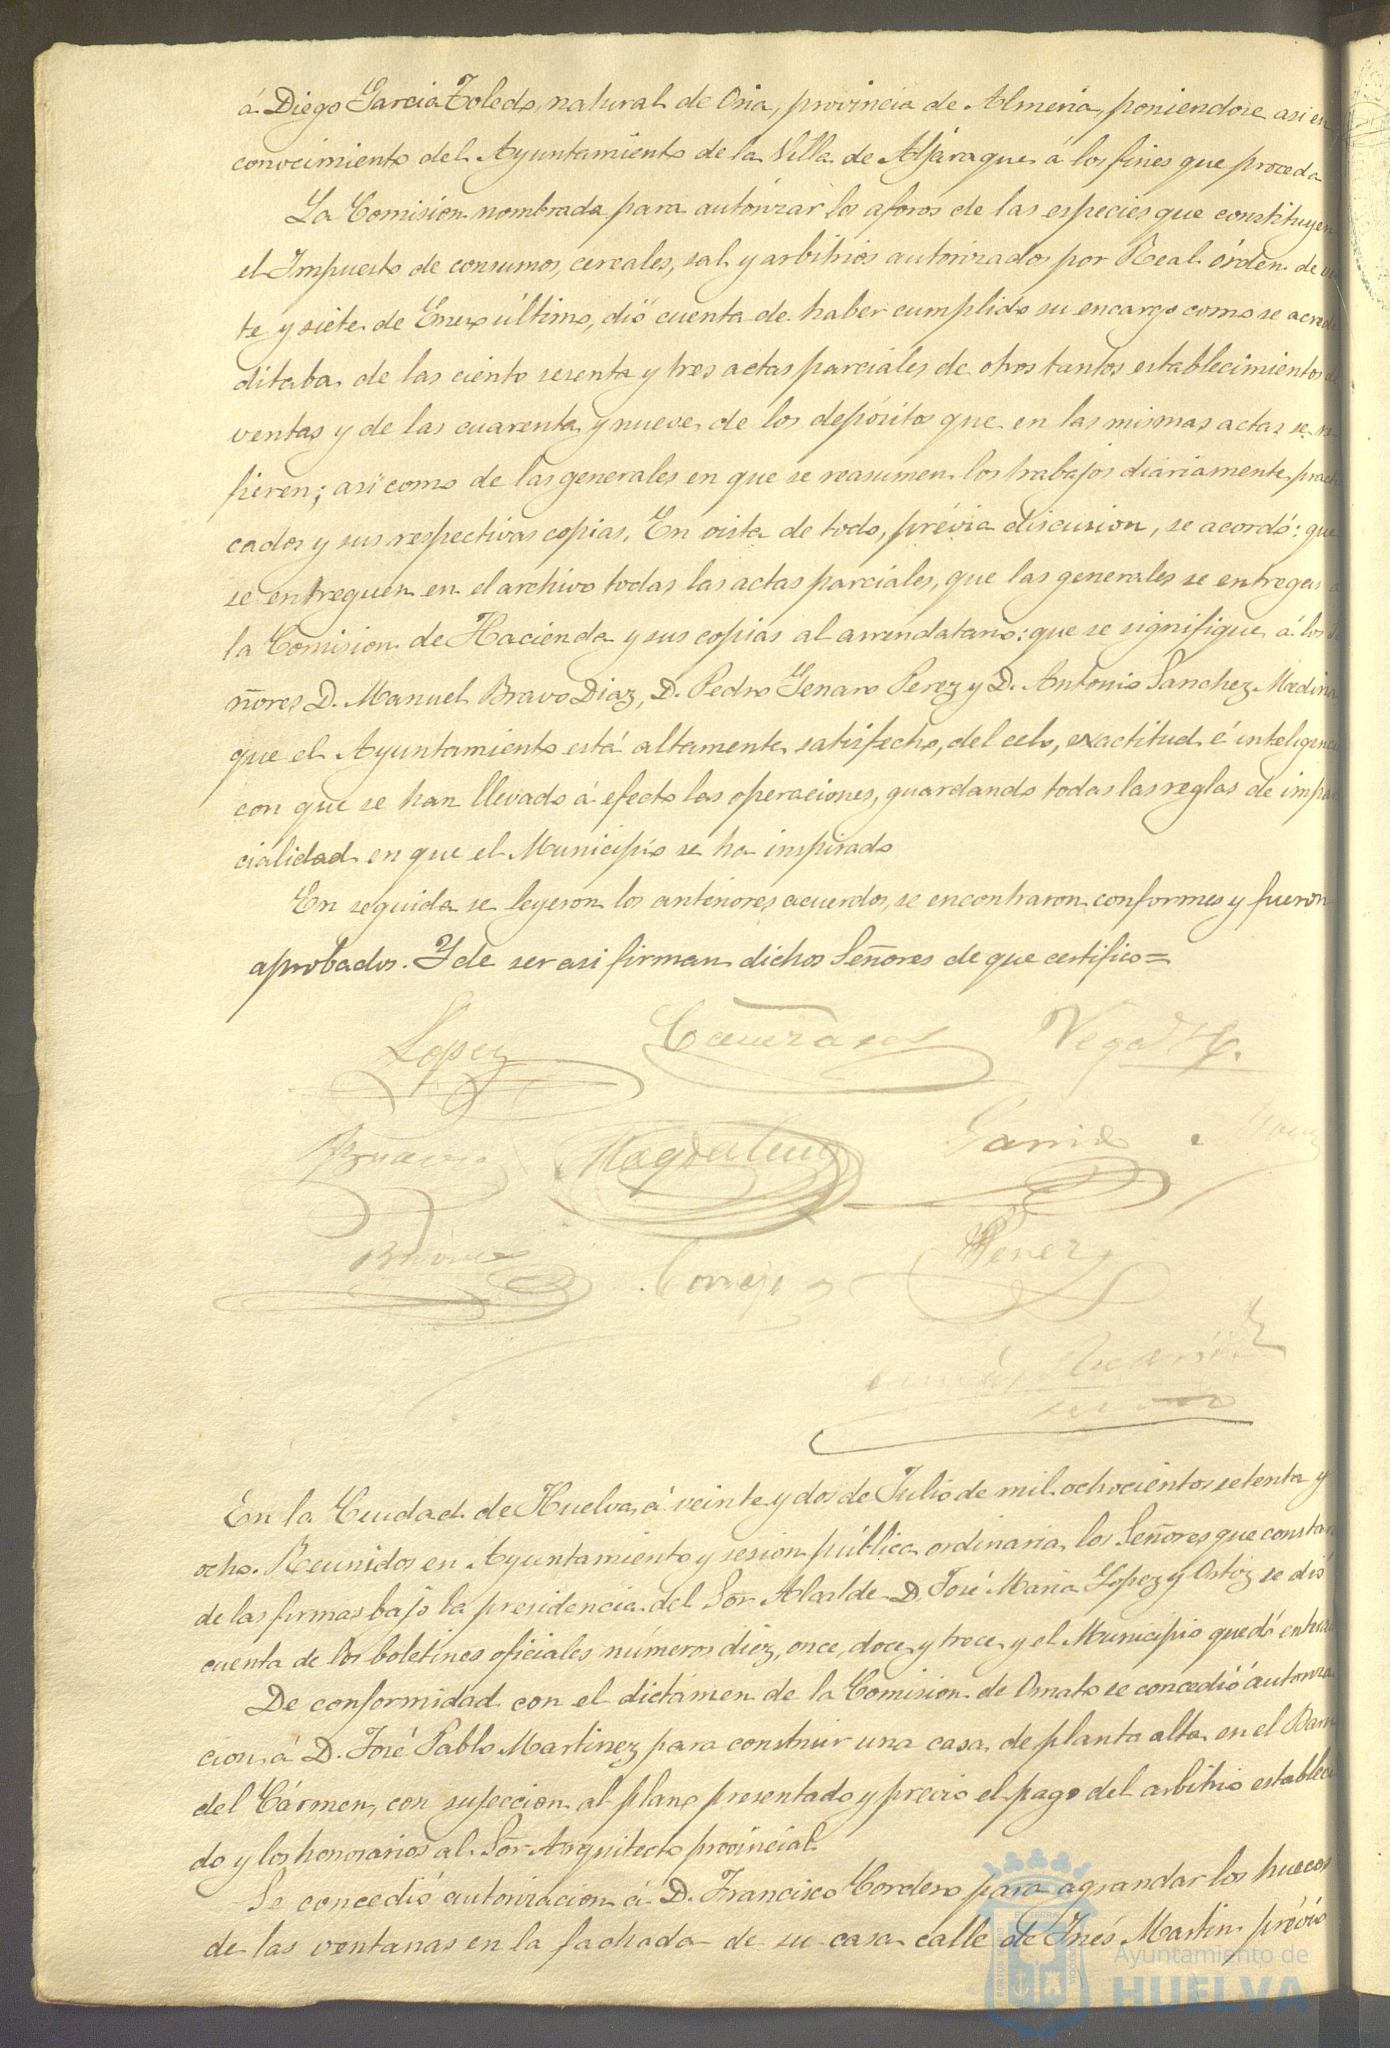 á Diego Garcia Toledo, natural de Oria, provincia de Almeria, poniendose asi en
conocimiento del Ayuntamiento de la Villa de Aljaraque á los fines que proceda
La Comision nombrada para autorizar los aforos de las especies que constituyen
el Impuesto de consumos, cereales, sal y arbitrios autorizados por Real órden de
te y siete de Enero último, dió cuenta de haber cumplido su encargo como se acre
ditaba de las ciento sesenta y tres actas parciales de otros tantos establecimientos de
ventas y de las cuarenta y nueve de los depósitos que en las mismas actas se re
fieren; asi como de las generales en que se reasumen los trabajos diariamente practi
cados y sus respectivas copias. En vista de todo, prévia discusion, se acordó: que
se entreguen en el archivo todas las actas parciales, que las generales se entregen a
la Comision de Hacienda y sus copias al arrendatario: que se signifique á los
ñores D. Manuel Bravo Diaz, D. Pedro Genaro Perez y D. Antonio Sanchez Medina
que el Ayuntamiento está altamente satisfecho, del celo, exactitud é inteligencia
con que se han llevado á efecto las operaciones, guardando todas las reglas de impar
cialidad en que el Municipio se ha inspirado
En seguida se leyeron los anteriores acuerdos, se encontraron conformes y fueron
aprobados. Y de ser asi firman dichos Señores de que certifico=
Lopez Vega
Magdalena Garrido
Perez
En la Ciudad de Huelva, á veinte y dos de Julio de mil ochocientos setenta y
ocho. Reunidos en Ayuntamiento y sesion pública ordinaria los Señores que constan
de las firmas bajo la presidencia del Sor. Alcalde D. José Maria Lopez y Ortiz se dió
cuenta de los boletines oficiales números diez, once, doce y trece, y el Municipio quedó
De conformidad con el dictámen de la Comision de Ornato se concedió autoriza
cion á D. José Pablo Martinez para construir una casa de planta alta en el
del Cármen, con sujeccion al plano presentado y précio el pago del arbitrio estableci
do y los honorarios al Sor. Arquitecto provincial.
Se concedió autorizacion á D. Francisco Cordero para agrandar los huecos
de las ventanas en la fachada de su casa calle de Inés Martin, prévio
Ayuntamiento de
HUELVA